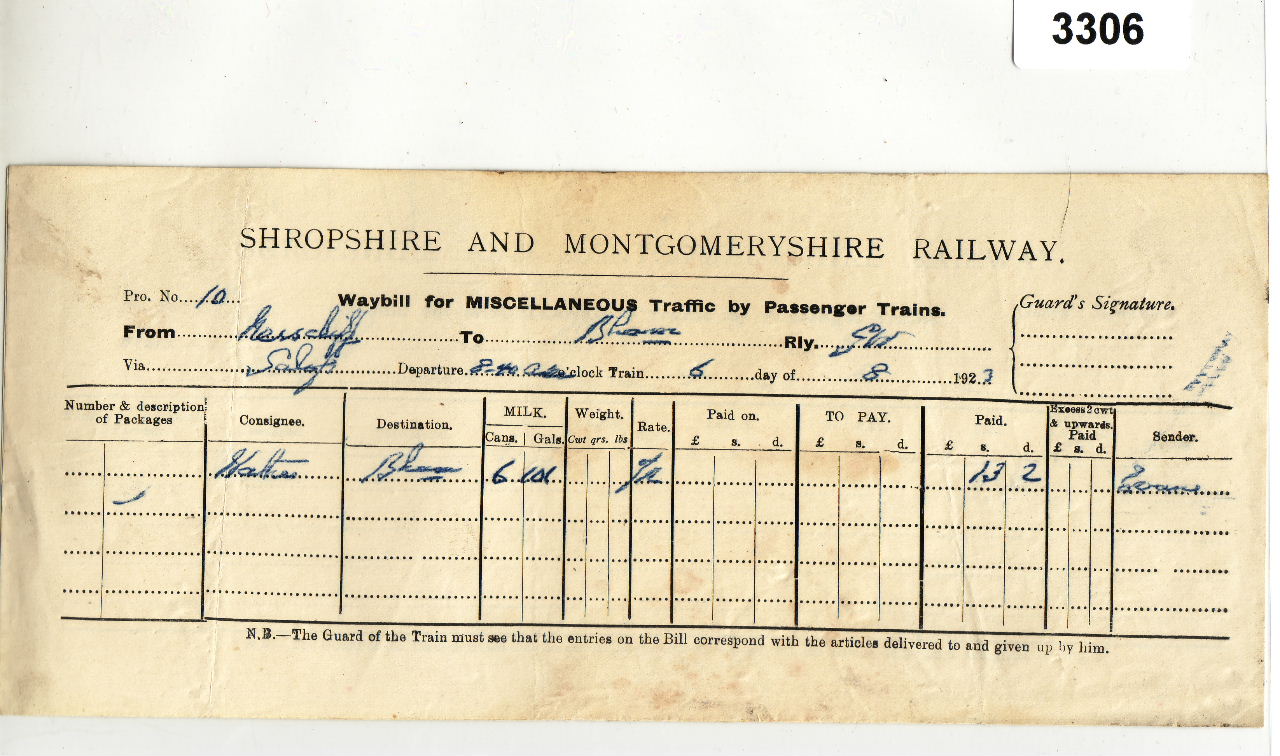 3306
SHROPSHIRE AND MONTGOMERYSHIRE RAILWAY.
Pro. No....10...
Waybill for MISCELLANEOUS Traffic by Passenger Trains.
Guard's Signature.
From.......... To Bham Rly. GW
Via.......... Departure 8- o'clock Train 6 day of 8 1923
Number & description of Packages Consignee. Destination. MILK. Cans. Gals. Weight. Cwt qrs. lbs Rate. Paid on. £ s. d. TO PAY. £ s. d. Paid. £ s. d. Excess 2 cwt & upwards. Paid £ s. d. Sender.
Bham 6 101 13 2 Evans
N.B.—The Guard of the Train must see that the entries on the Bill correspond with the articles delivered to and given up by him.